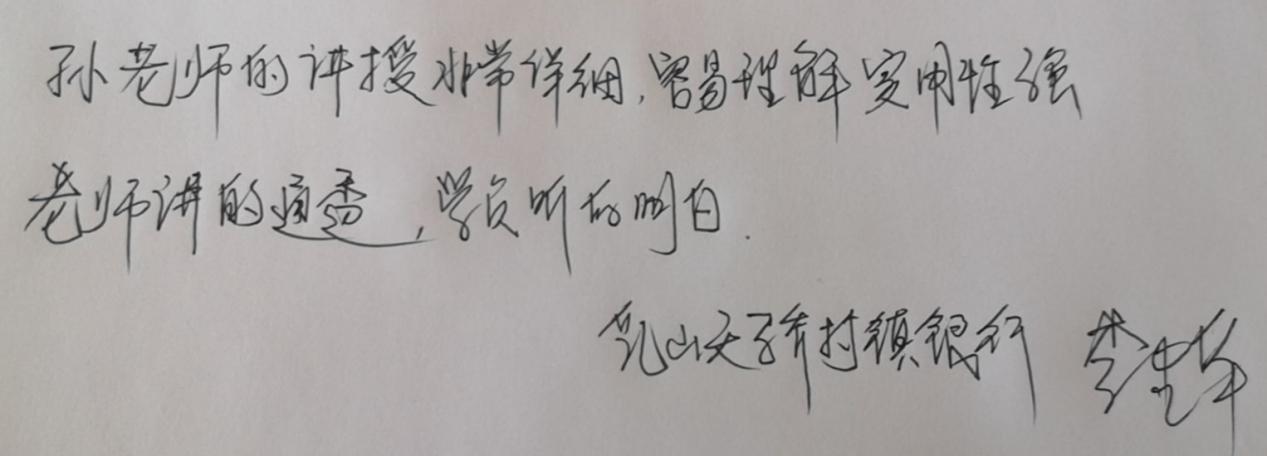 孙老师的讲授非常详细,容易理解实用性强
老师讲的通透,学员听的明白.
乳山天骄村镇银行 李